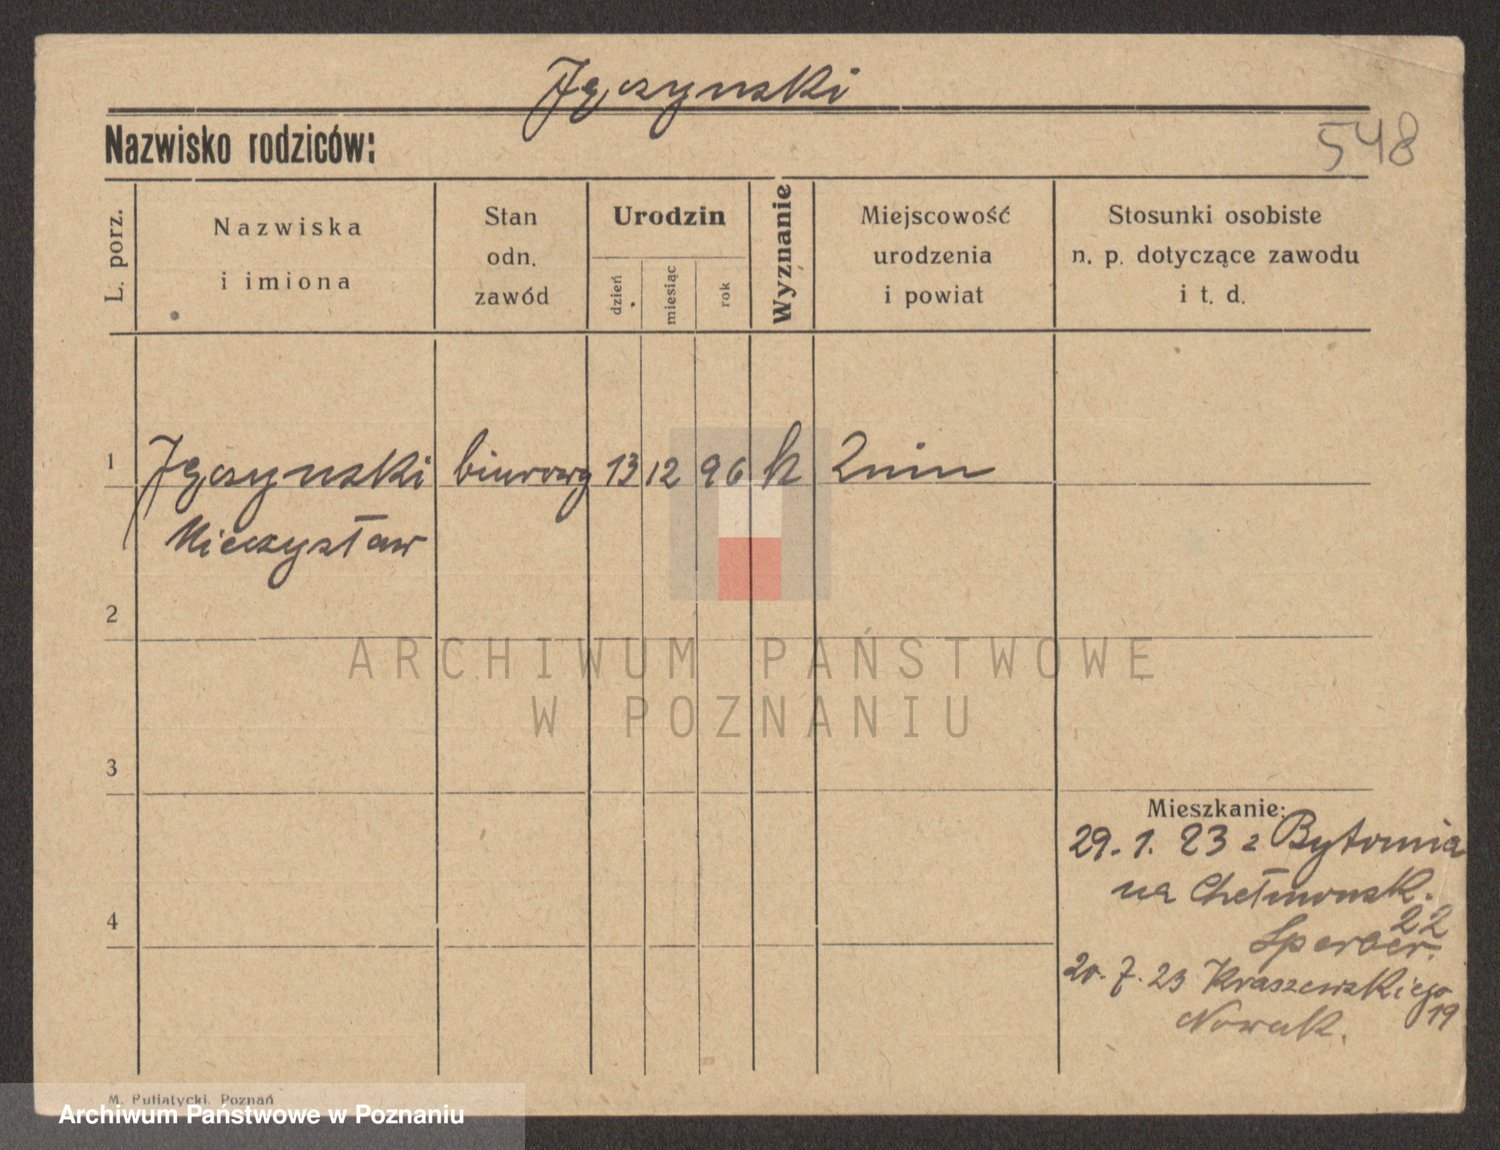 Jęczynski
Nazwisko rodziców:
548
L. porz.
Nazwiska
i imiona
Stan
odn.
zawód
Urodzin
dzień
miesiąc
rok
Wyznanie
Miejscowość
urodzenia
i powiat
Stosunki osobiste
n. p. dotyczące zawodu
i t. d.
1 Jęczynski biurowy 13 12 96 k Znin
Mieczysław
2
ARCHIWUM PAŃSTWOWE
W POZNANIU
3
Mieszkanie:
29. 1. 23 z Bytomia
na Chełmonsk.
22
4
Sperber.
20. 7. 23 Kraszewskiego
19
Nowak.
M. Putiatycki, Poznań
Archiwum Państwowe w Poznaniu